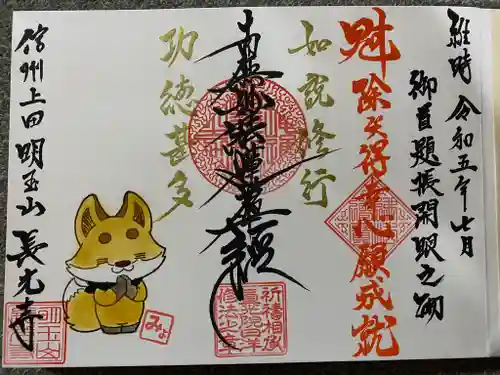 維時 令和五年七月
御首題帳開眼之砌
除災得幸心願成就
如説修行
南無妙法蓮華経
祈祷相承
功徳甚多
みょ
信州上田 明玉山 妙光寺